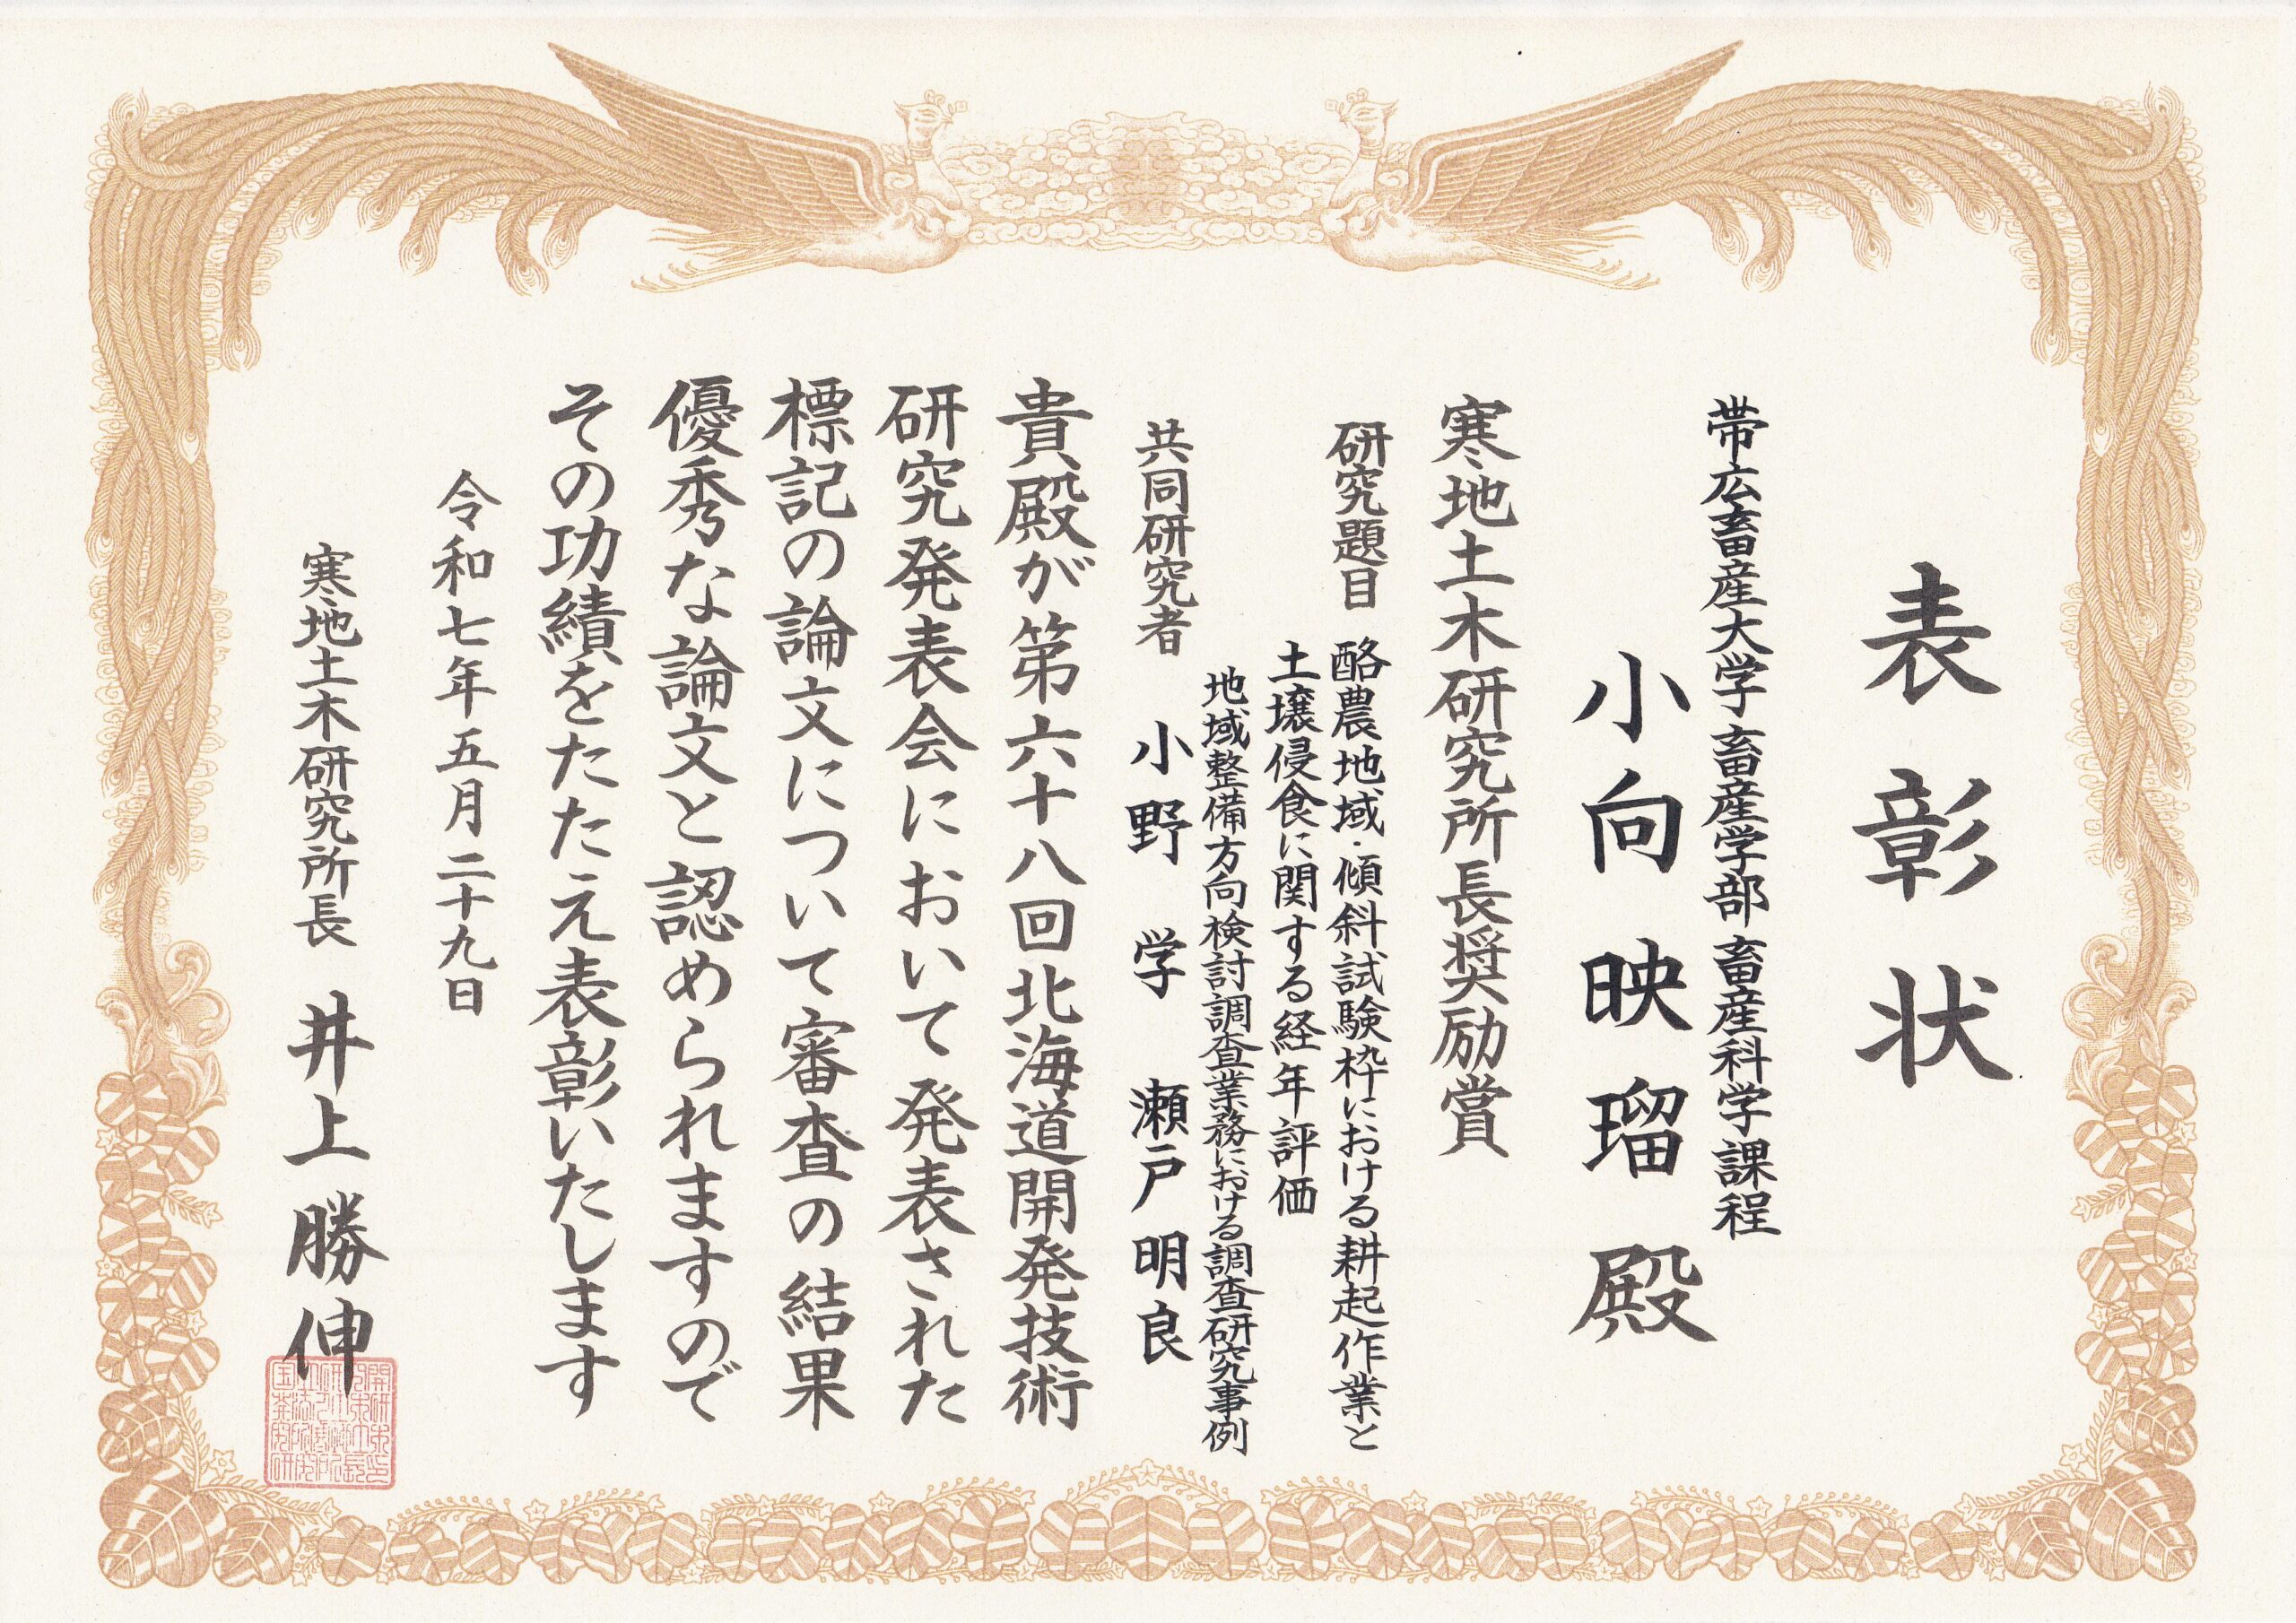 表彰状
帯広畜産大学 畜産学部 畜産科学課程
小向映瑠殿
寒地土木研究所長奨励賞
研究題目 酪農地域・傾斜試験枠における耕起作業と
土壌侵食に関する経年評価
地域整備方向検討調査業務における調査研究事例
共同研究者 小野 学 瀬戸 明良
貴殿が第六十八回北海道開発技術
研究発表会において発表された
標記の論文について審査の結果
優秀な論文と認められますので
その功績をたたえ表彰いたします
令和七年五月二十九日
寒地土木研究所長 井上勝伸